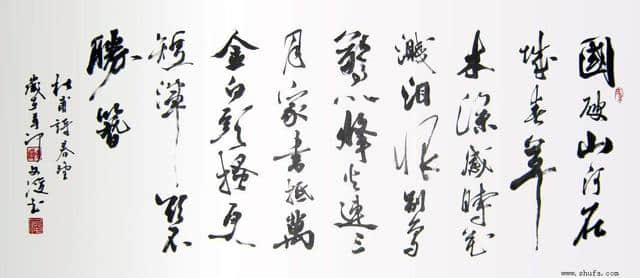 國破山河在
城春草
木深感時花
濺泪恨别鳥
驚心烽火連三
月家書抵萬
金白頭搔更
短渾欲不
勝簪
杜甫詩春望
www.shufa.com